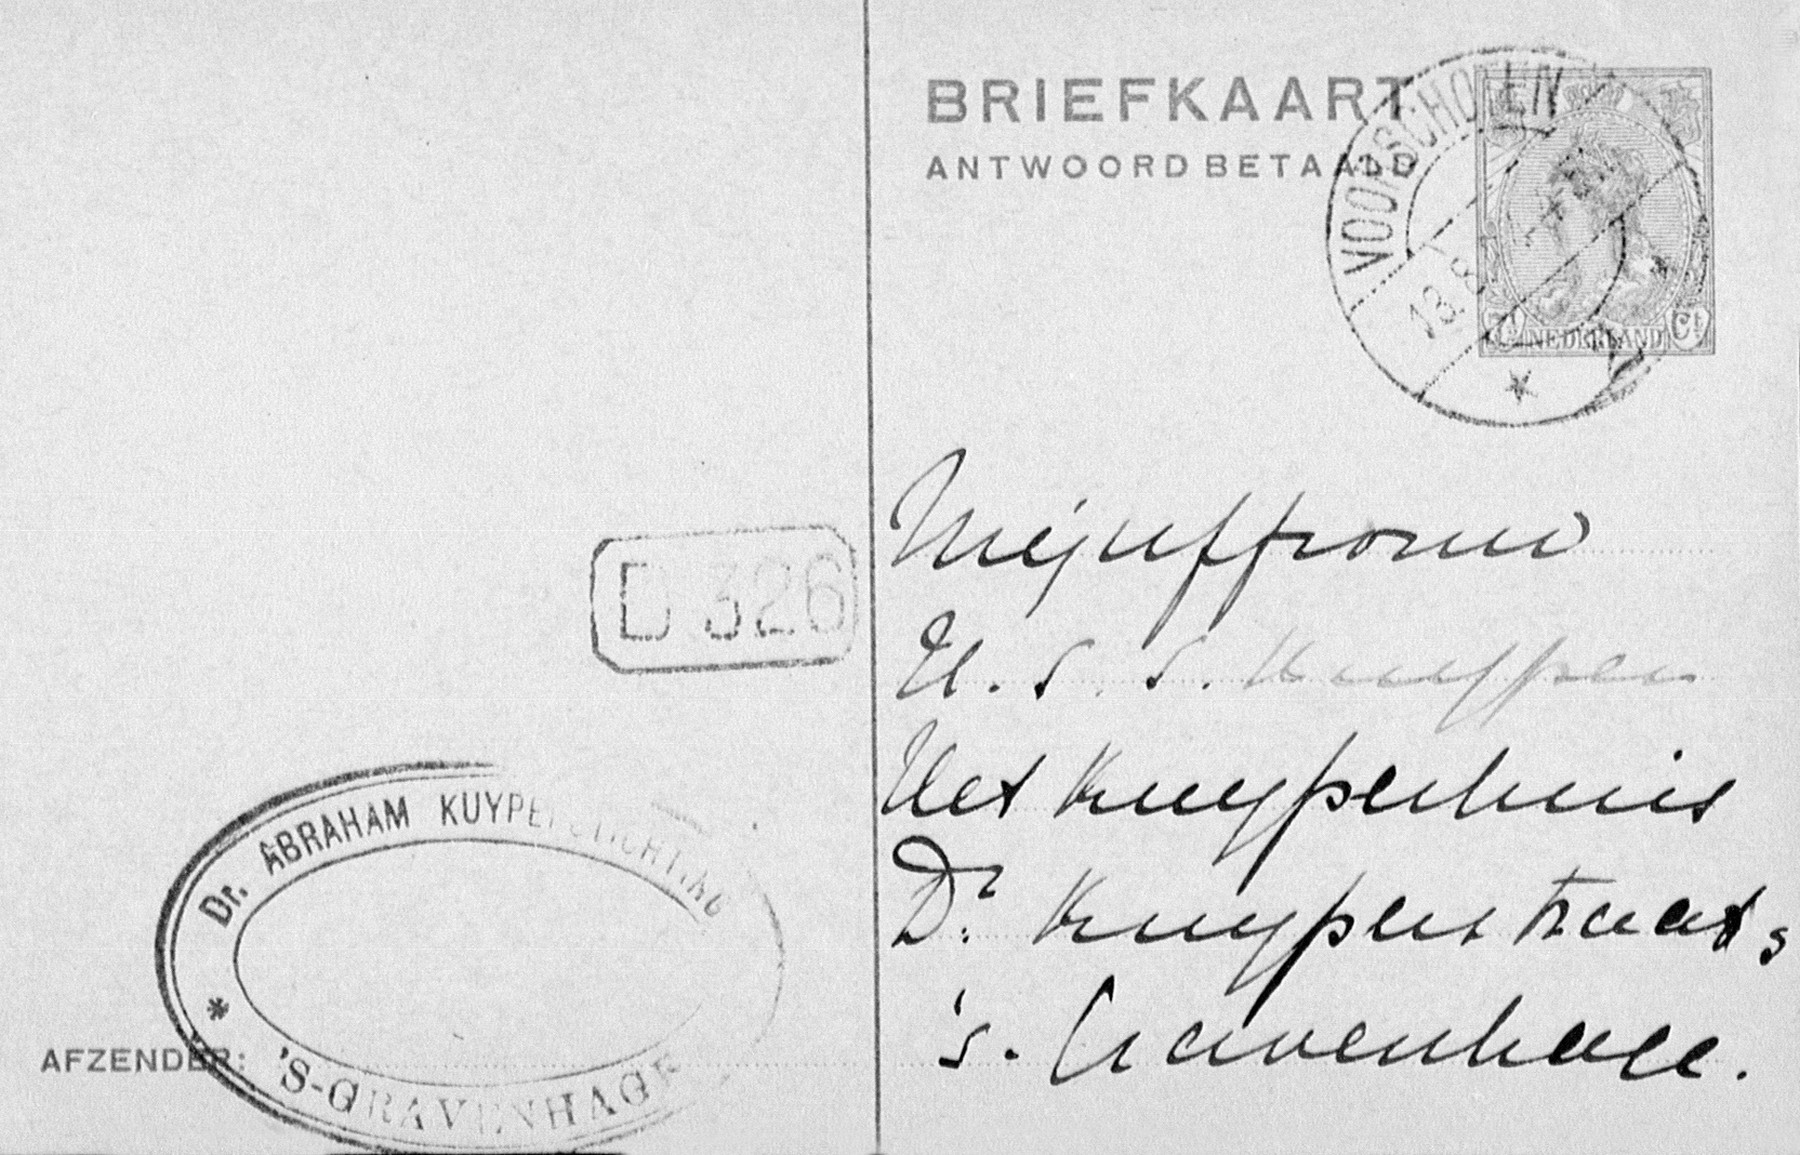 BRIEFKAART
ANTWOORD BETAALD
VOORSCHOTEN
13 8
NEDERLAND
Ct
Mejuffrouw
H. S. S. Kuyper
Het Kuyperhuis
Dr. Kuyperstraat,
's-Gravenhage.
D 326
Dr. ABRAHAM KUYPERSTICHTING
* 'S-GRAVENHAGE
AFZENDER: